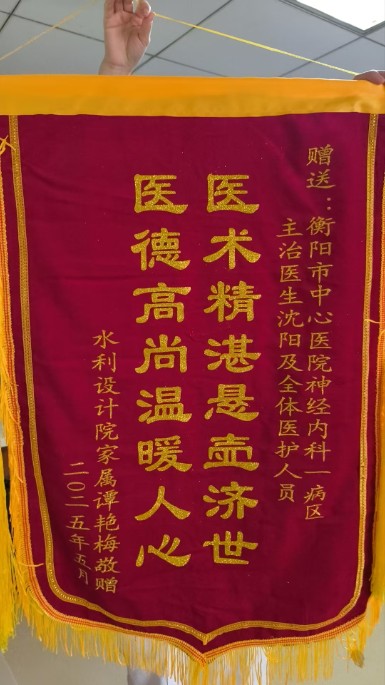 赠送：衡阳市中心医院神经内科一病区
主治医生沈阳及全体医护人员
医术精湛悬壶济世
医德高尚温暖人心
水利设计院家属谭艳梅敬赠
二〇二五年五月